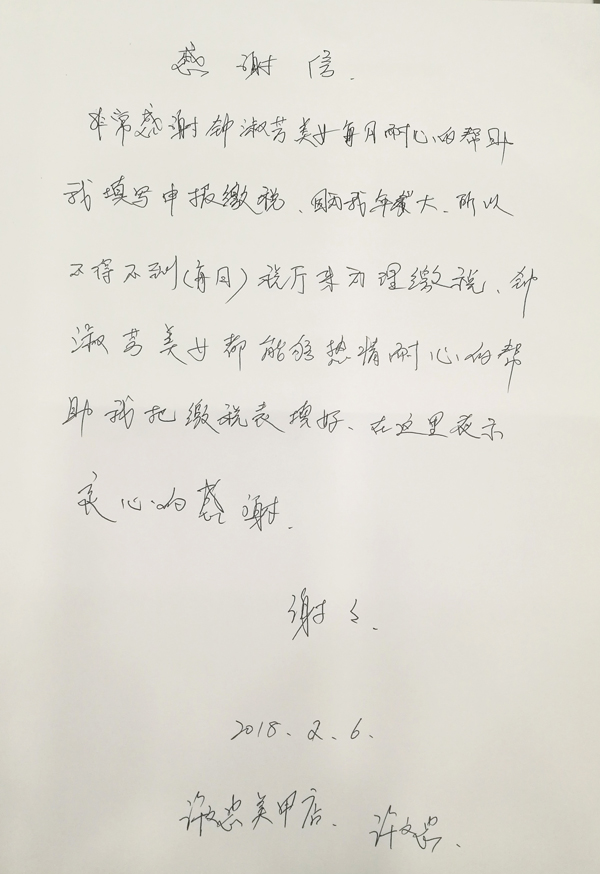 感谢信.
非常感谢钟淑芳美女每月耐心的帮助
我填写申报缴税、因我年龄大、所以
不得不到(每月)税厅来办理缴税、钟
淑芳美女都能够热情耐心的帮
助我把缴税表填好、在这里表示
衷心的感谢.
谢々.
2018.2.6.
许文忠美甲店. 许文忠.